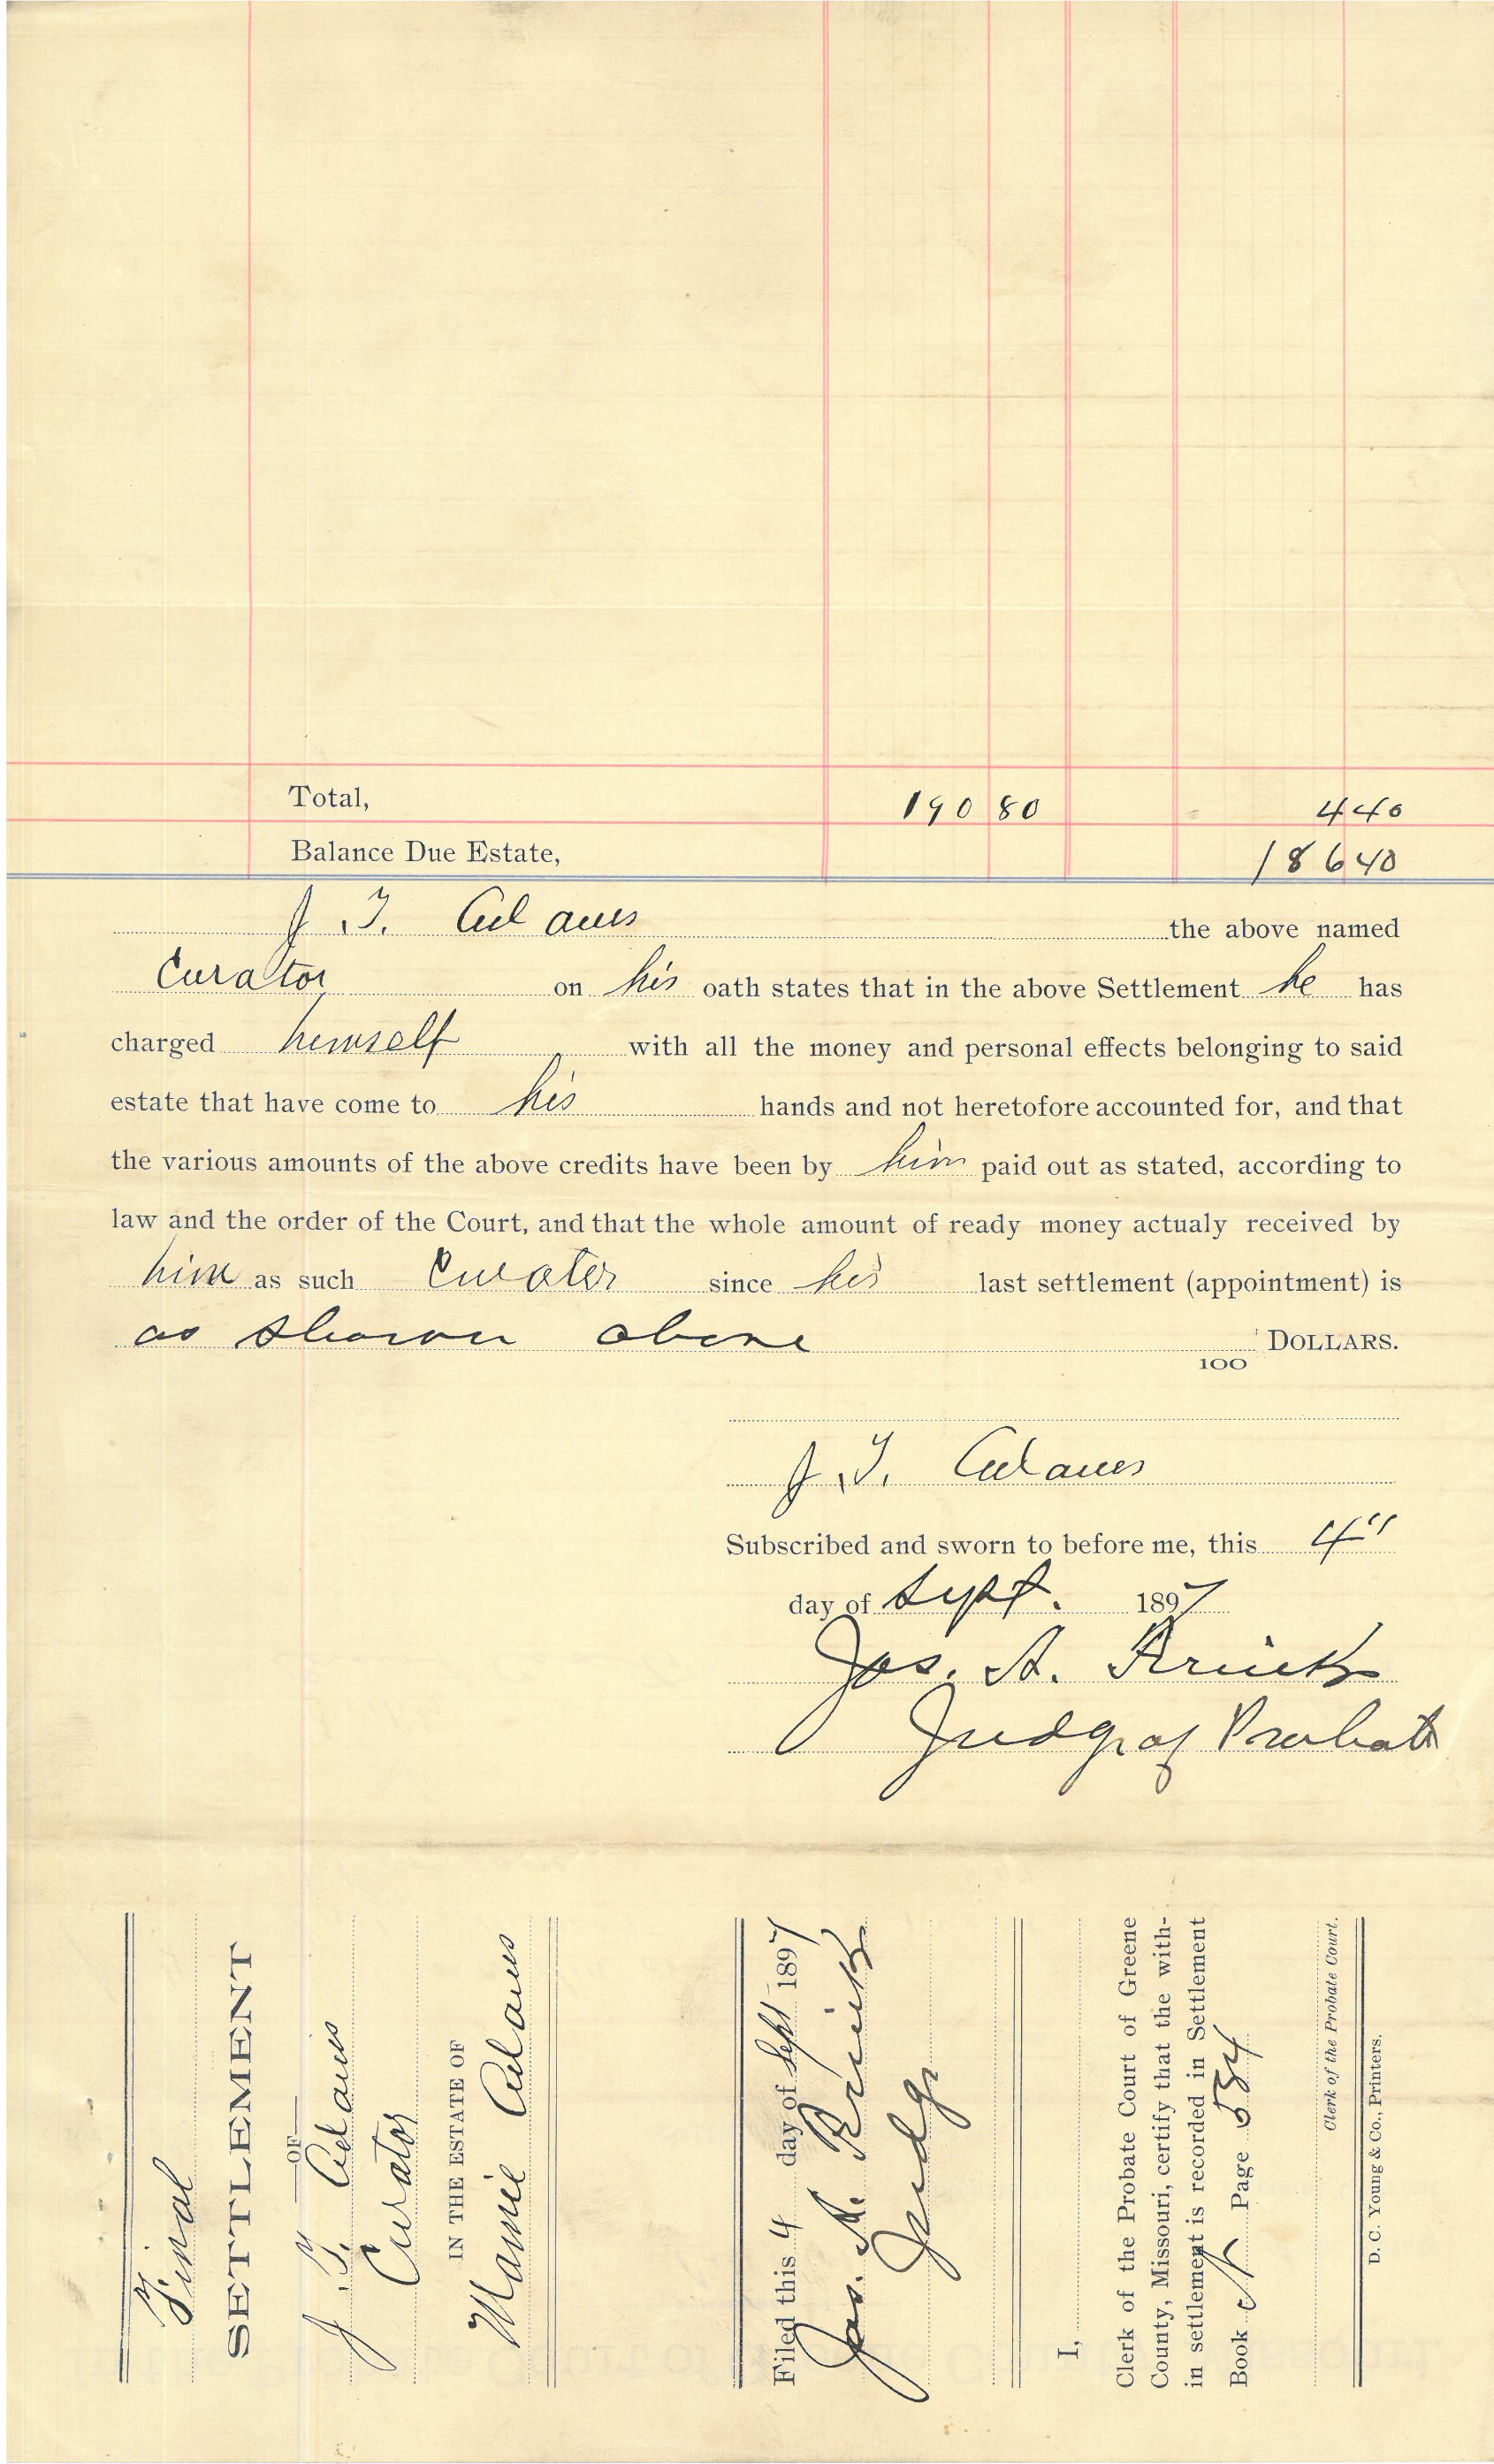 Total, 190 80 4 40
Balance Due Estate, 186 40
J. T. Adams the above named
Curator on his oath states that in the above Settlement he has
charged himself with all the money and personal effects belonging to said
estate that have come to his hands and not heretofore accounted for, and that
the various amounts of the above credits have been by him paid out as stated, according to
law and the order of the Court, and that the whole amount of ready money actualy received by
him as such Curator since his last settlement (appointment) is
as shown above
100 DOLLARS.
J. T. Adams
Subscribed and sworn to before me, this 4"
day of Sept. 1897
Jos. A.
Judge of Probate
Final
SETTLEMENT
OF
J. T. Adams
Curator
IN THE ESTATE OF
Mamie Adams
Filed this 4 day of Sept 1897
Jos. A.
Judge
I,
Clerk of the Probate Court of Greene
County, Missouri, certify that the with-
in settlement is recorded in Settlement
Book Page 534
Clerk of the Probate Court.
D. C. Young & Co., Printers.